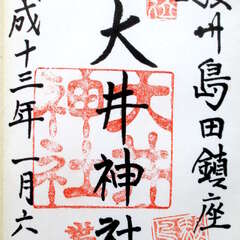 州島田鎮座
大井神社
成十三年一月六
大井
神社